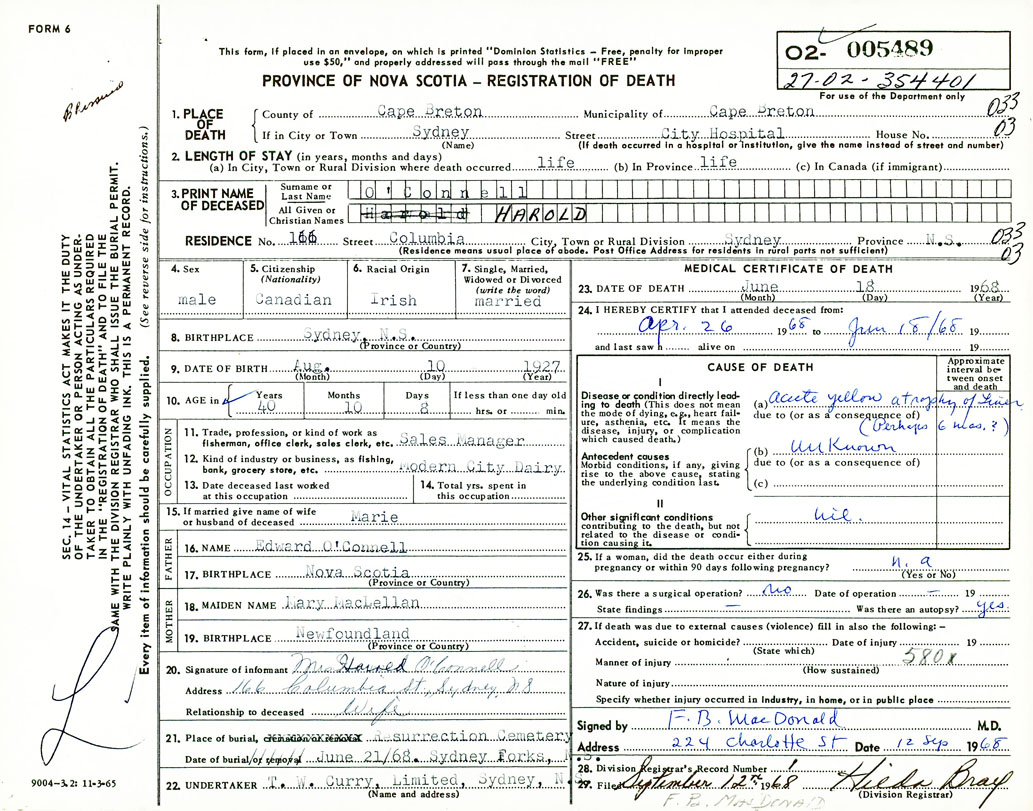 FORM 6
This form, if placed in an envelope, on which is printed "Dominion Statistics – Free, penalty for improper
use $50," and properly addressed will pass through the mail "FREE"
PROVINCE OF NOVA SCOTIA – REGISTRATION OF DEATH
O2- 005489
27-02-354401
For use of the Department only
033
03
SEC. 14 – VITAL STATISTICS ACT MAKES IT THE DUTY
OF THE UNDERTAKER OR PERSON ACTING AS UNDER-
TAKER TO OBTAIN ALL THE PARTICULARS REQUIRED
IN THE "REGISTRATION OF DEATH" AND TO FILE THE
SAME WITH THE DIVISION REGISTRAR WHO SHALL ISSUE THE BURIAL PERMIT.
WRITE PLAINLY WITH UNFADING INK. THIS IS A PERMANENT RECORD.
Every item of information should be carefully supplied. (See reverse side for instructions.)
1. PLACE OF DEATH
County of Cape Breton Municipality of Cape Breton
If in City or Town Sydney Street City Hospital House No.
(Name) (If death occurred in a hospital or institution, give the name instead of street and number)
2. LENGTH OF STAY (in years, months and days)
(a) In City, Town or Rural Division where death occurred life (b) In Province life (c) In Canada (if immigrant)
3. PRINT NAME OF DECEASED
Surname or Last Name O'Connell
All Given or Christian Names Harold HAROLD
RESIDENCE No. 166 Street Columbia City, Town or Rural Division Sydney Province N.S. 033
03
(Residence means usual place of abode. Post Office Address for residents in rural parts not sufficient)
4. Sex
male
5. Citizenship
(Nationality)
Canadian
6. Racial Origin
Irish
7. Single, Married,
Widowed or Divorced
(write the word)
married
8. BIRTHPLACE Sydney, N.S.
(Province or Country)
9. DATE OF BIRTH Aug. 10 1927
(Month) (Day) (Year)
10. AGE in Years Months Days If less than one day old
40 10 8 hrs. or min.
OCCUPATION
11. Trade, profession, or kind of work as
fisherman, office clerk, sales clerk, etc. Sales Manager
12. Kind of industry or business, as fishing,
bank, grocery store, etc. Modern City Dairy
13. Date deceased last worked
at this occupation
14. Total yrs. spent in
this occupation
15. If married give name of wife
or husband of deceased Marie
FATHER
16. NAME Edward O'Connell
17. BIRTHPLACE Nova Scotia
(Province or Country)
MOTHER
18. MAIDEN NAME Mary MacLellan
19. BIRTHPLACE Newfoundland
(Province or Country)
20. Signature of informant Mrs Harold O'Connell
Address 166 Columbia St., Sydney, NS
Relationship to deceased Wife
21. Place of burial, cremation or removal Resurrection Cemetery
Date of burial/or removal June 21/68. Sydney Forks, N.S.
22. UNDERTAKER T. W. Curry, Limited, Sydney, N.S.
(Name and address)
9004–3.2: 11-3-65
MEDICAL CERTIFICATE OF DEATH
23. DATE OF DEATH June 18 1968
(Month) (Day) (Year)
24. I HEREBY CERTIFY that I attended deceased from:
Apr. 26 1968 to Jun 18/68 19
and last saw h alive on 19
CAUSE OF DEATH
Approximate
interval be-
tween onset
and death
I
Disease or condition directly lead-
ing to death (This does not mean
the mode of dying, e.g., heart fail-
ure, asthenia, etc. It means the
disease, injury, or complication
which caused death.)
(a) Acute yellow atrophy of Liver
due to (or as a consequence of)
(Perhaps 6 mos.?)
Antecedent causes
Morbid conditions, if any, giving
rise to the above cause, stating
the underlying condition last.
(b) Unknown
due to (or as a consequence of)
(c)
II
Other significant conditions
contributing to the death, but not
related to the disease or condi-
tion causing it.
nil.
25. If a woman, did the death occur either during
pregnancy or within 90 days following pregnancy? n.a
(Yes or No)
26. Was there a surgical operation? no Date of operation – 19
State findings – Was there an autopsy? yes.
27. If death was due to external causes (violence) fill in also the following: –
Accident, suicide or homicide? Date of injury 19
(State which)
Manner of injury 580x
(How sustained)
Nature of injury
Specify whether injury occurred in industry, in home, or in public place
Signed by F. B. MacDonald M.D.
Address 224 Charlotte St Date 12 Sep 1968
28. Division Registrar's Record Number
29. Filed September 12th 1968 Hilda Bray
(Division Registrar)
F. B. MACDONALD